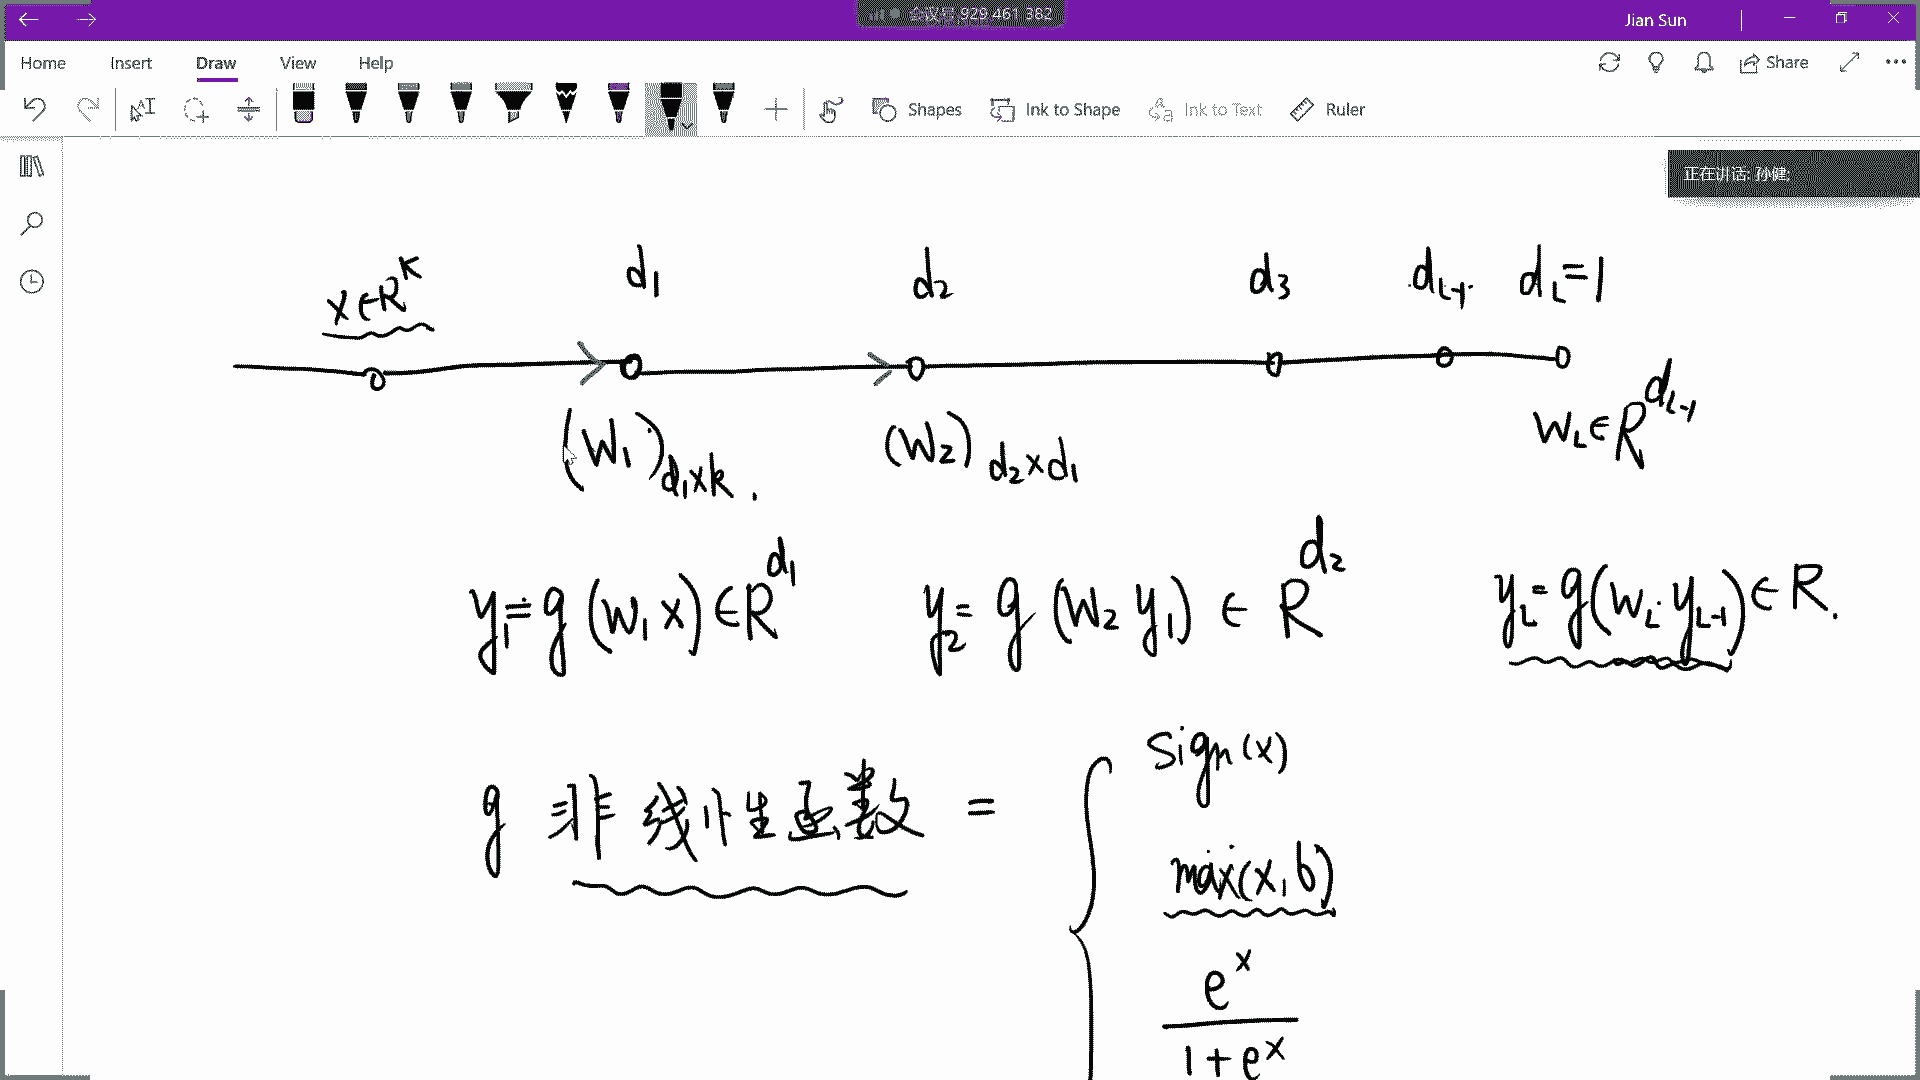 会议号: 929 461 382
Jian Sun
Home Insert Draw View Help
Share
Shapes Ink to Shape Ink to Text Ruler
正在讲话: 孙健;
x∈R^k d₁ d₂ d₃ d_{L-1} d_L=1
(W₁)_{d₁×k} . (W₂)_{d₂×d₁} W_L∈R^{d_{L-1}}
y₁=g(W₁x)∈R^{d₁} y₂=g(W₂y₁)∈R^{d₂} y_L=g(W_L·y_{L-1})∈R.
g 非线性函数 = {
sign(x)
max(x,b)
e^x
1+e^x